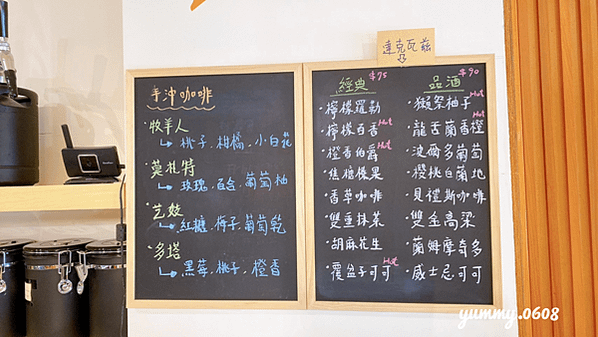 達克瓦茲
手沖咖啡
牧羊人
桃子、柑橘、小白花
莫札特
玫瑰、百合、葡萄柚
藝妓
紅糖、梅子、葡萄乾
多塔
黑莓、桃子、橙香
經典 $75
·檸檬羅勒
·檸檬百香 Hot
·橙香伯爵 Hot
·焦糖榛果
·香草咖啡
·雙重抹茶
·胡麻花生
·覆盆子可可 Hot
品酒 $90
·獺祭柚子 Hot
·龍舌蘭香橙 Hot
·波爾多葡萄
·櫻桃白蘭地
·貝禮斯咖啡
·雙金高梁
·蘭姆摩奇多
·威士忌可可
yummy.0608